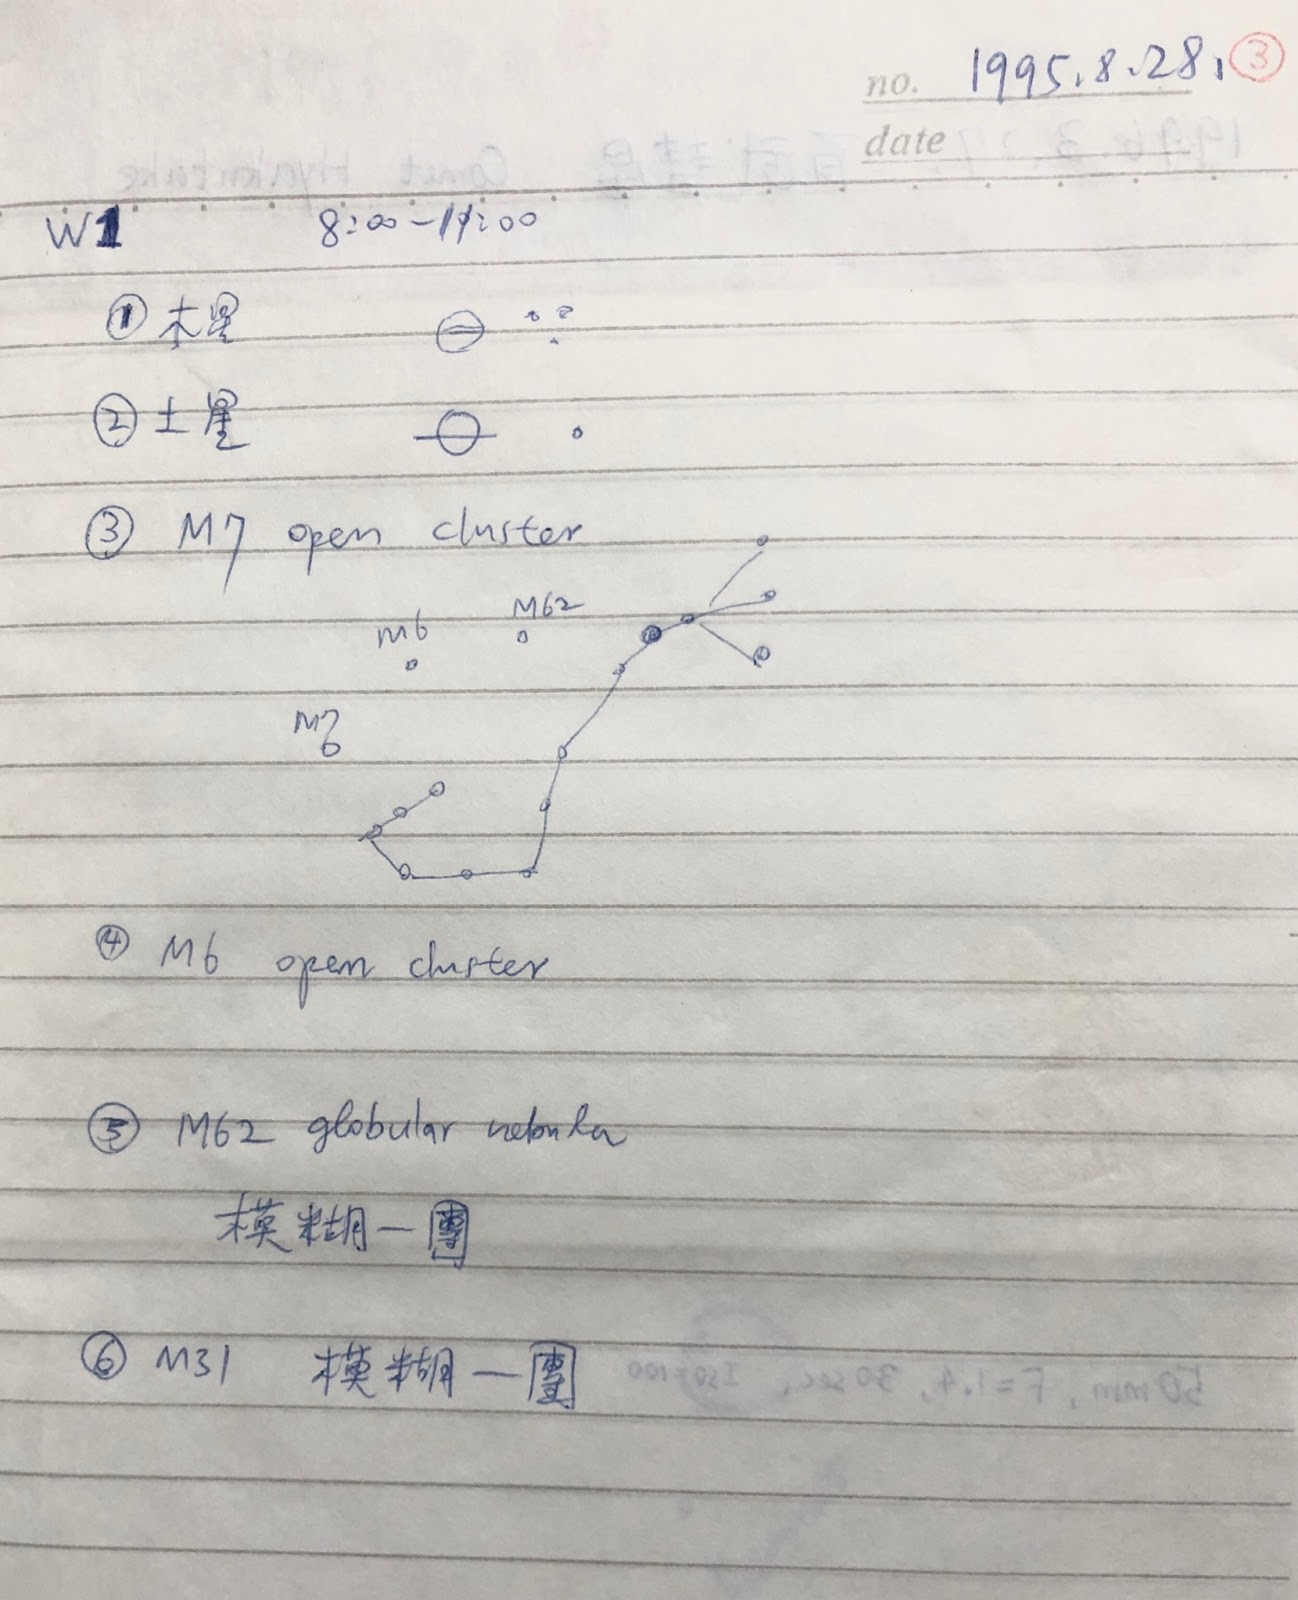 no. 1995.8.28. ③
date
W1 8:00-11:00
① 木星
② 土星
③ M7 open cluster
M62
M6
M7
④ M6 open cluster
⑤ M62 globular nebula
模糊一團
⑥ M31 模糊一團